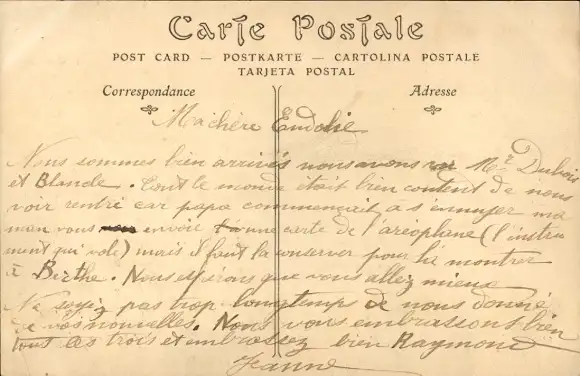 Carte Postale
POST CARD — POSTKARTE — CARTOLINA POSTALE
TARJETA POSTAL
Correspondance
Adresse
Ma chère Eudolie
Nous sommes bien arrivés nous avons Mr Dubois
et Blande. Tout le monde était bien content de nous
voir rentré car papa commençait à s'ennuyer ma
man vous envoie une carte de l'aréoplane (l'instru
ment qui vole) mais il faut la conserver pour lui montrer
à Berthe. Nous espérons que vous allez mieux
Ne soyez pas trop longtemps de nous donné
de vos nouvelles. Nous vous embrassons bien
tous les trois et embrassez bien Raymond
Jeanne